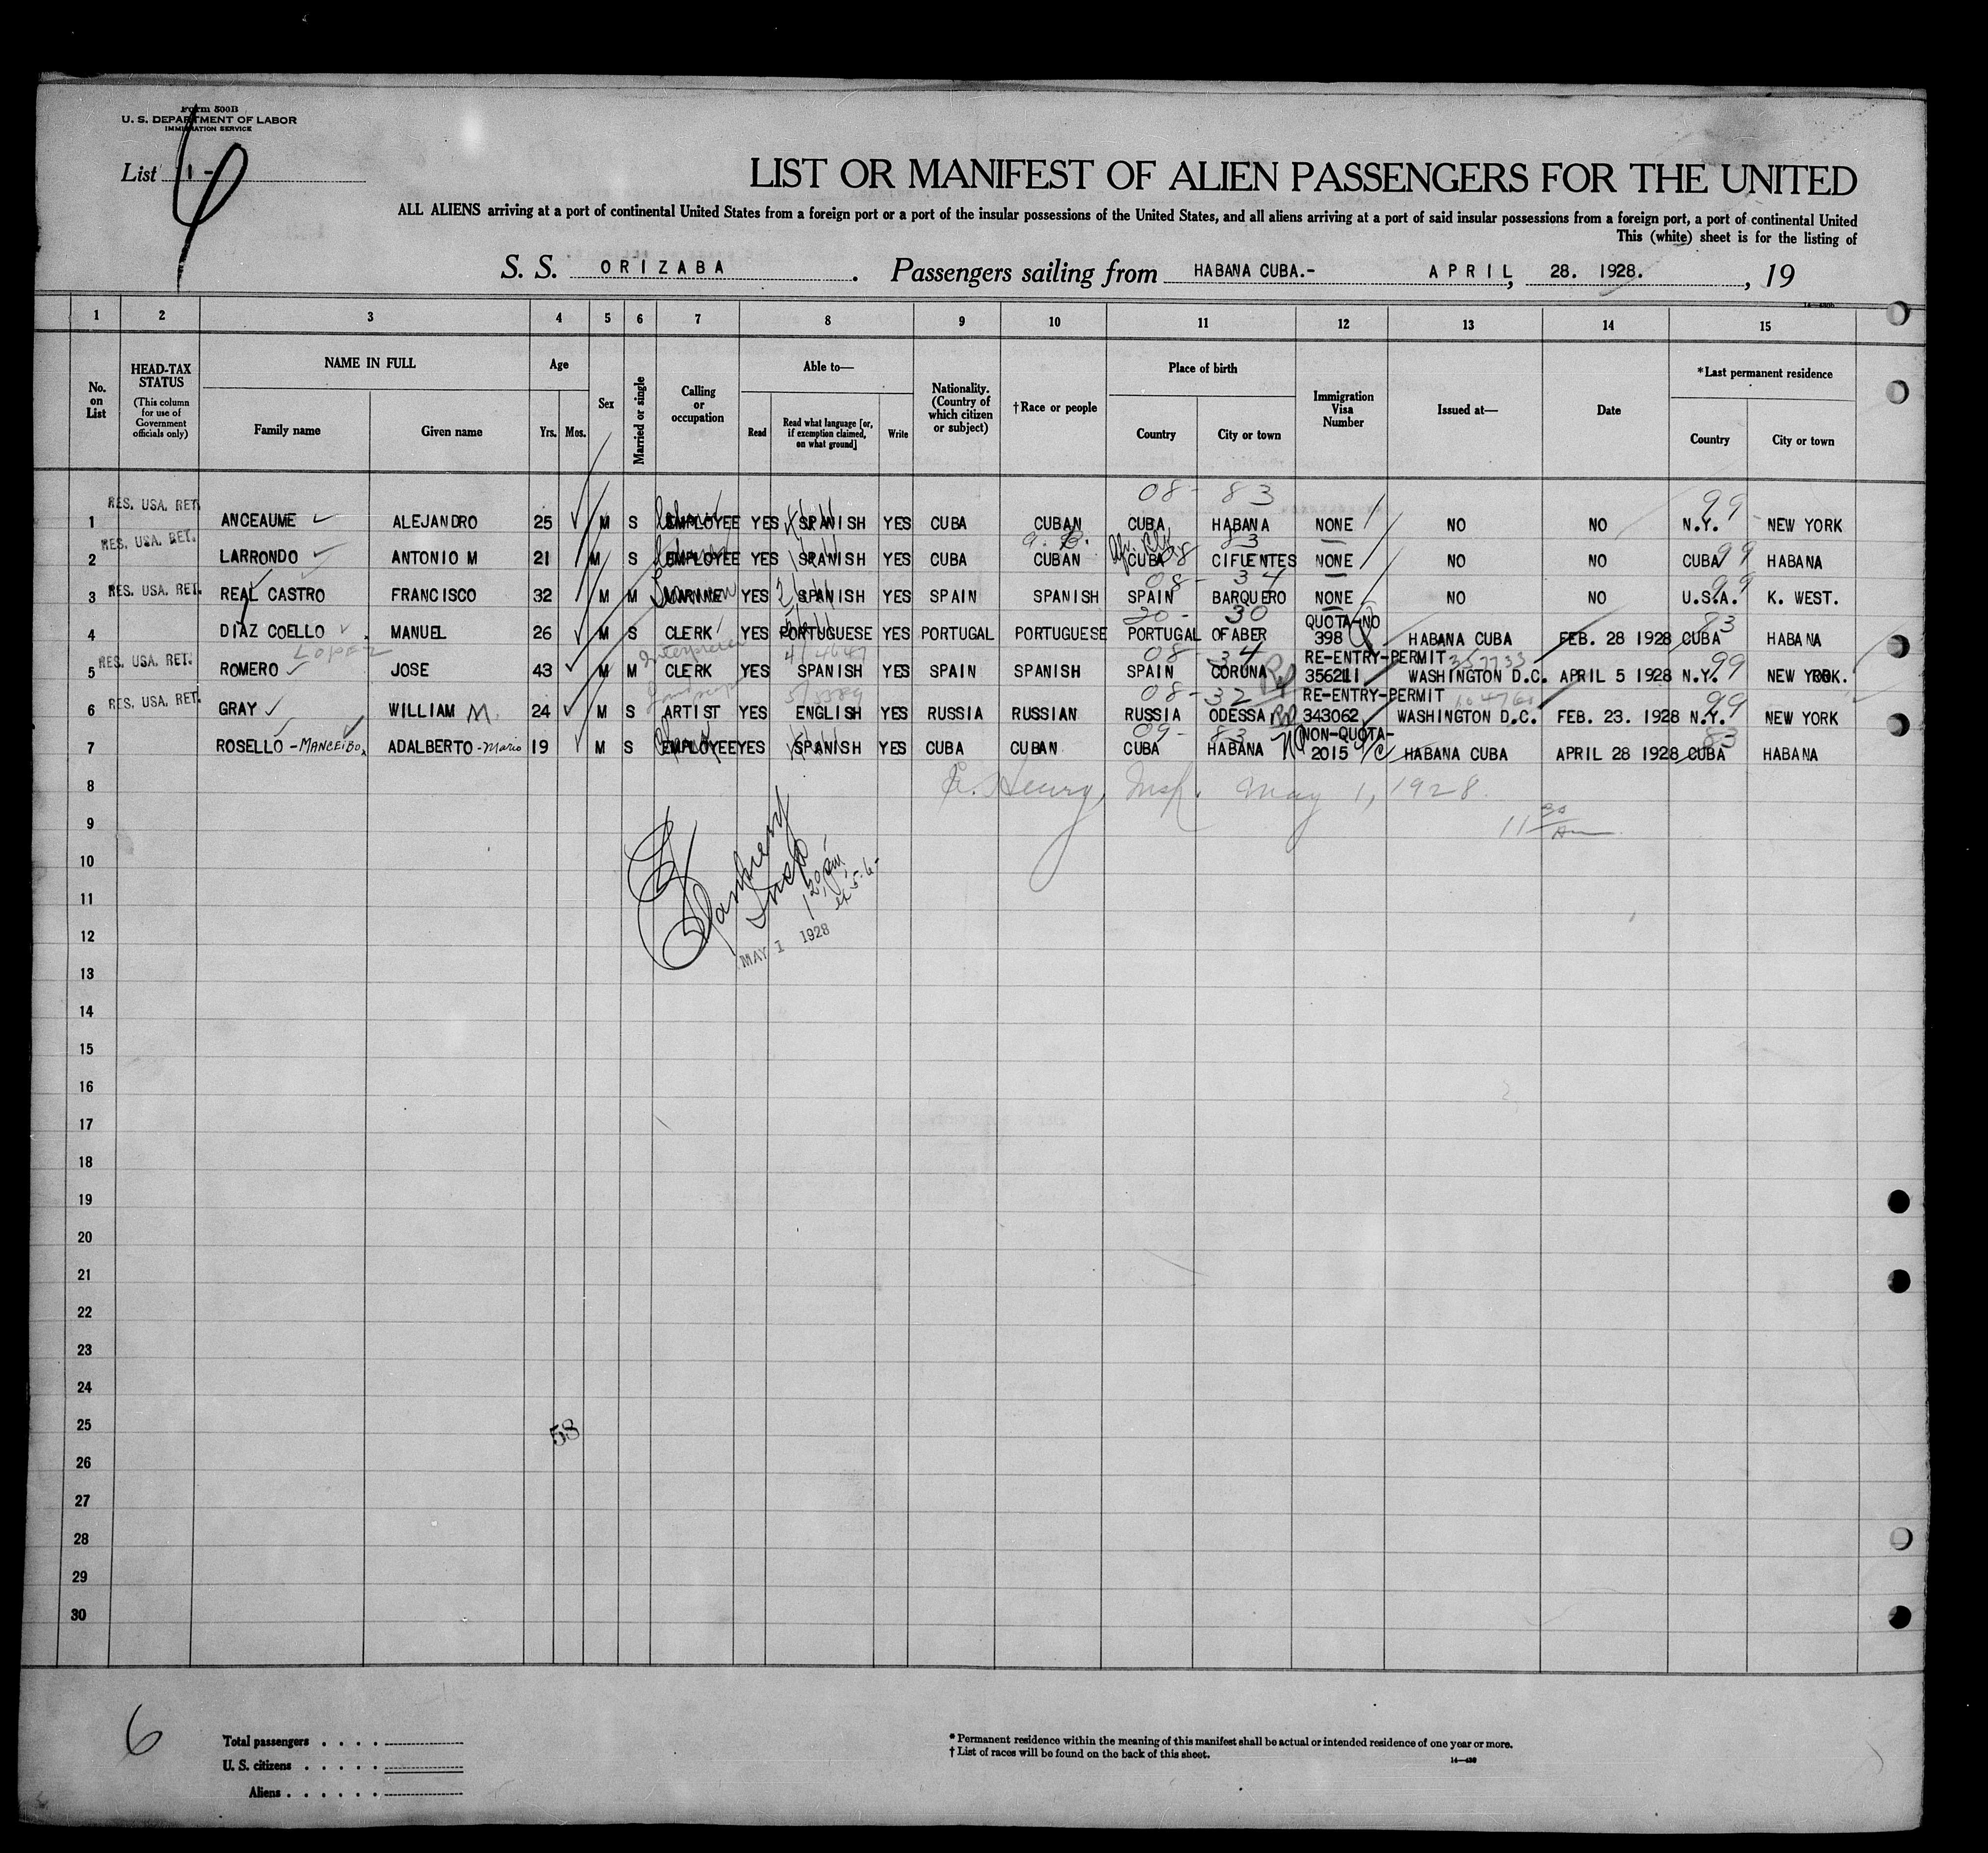 Form 500B
U. S. DEPARTMENT OF LABOR
IMMIGRATION SERVICE
List 1 -
LIST OR MANIFEST OF ALIEN PASSENGERS FOR THE UNITED
ALL ALIENS arriving at a port of continental United States from a foreign port or a port of the insular possessions of the United States, and all aliens arriving at a port of said insular possessions from a foreign port, a port of continental United
This (white) sheet is for the listing of
S. S. ORIZABA. Passengers sailing from HABANA CUBA.- APRIL, 28. 1928., 19
1 2 3 4 5 6 7 8 9 10 11 12 13 14 15
No. on List
HEAD-TAX STATUS (This column for use of Government officials only)
NAME IN FULL
Family name
Given name
Age
Yrs. Mos.
Sex
Married or single
Calling or occupation
Able to—
Read
Read what language [or, if exemption claimed, on what ground]
Write
Nationality. (Country of which citizen or subject)
†Race or people
Place of birth
Country
City or town
Immigration Visa Number
Issued at—
Date
*Last permanent residence
Country
City or town
08- 83 99
1 RES. USA. RET. ANCEAUME ALEJANDRO 25 M S EMPLOYEE YES SPANISH YES CUBA CUBAN CUBA HABANA NONE NO NO N.Y. NEW YORK
83 99
2 RES. USA. RET. LARRONDO ANTONIO M 21 M S EMPLOYEE YES SPANISH YES CUBA CUBAN CUBA CIFUENTES NONE NO NO CUBA HABANA
08- 34 99
3 RES. USA. RET. REAL CASTRO FRANCISCO 32 M M MARINE YES SPANISH YES SPAIN SPANISH SPAIN BARQUERO NONE NO NO U.S.A. K. WEST.
20- 30 QUOTA-NO 83
4 DIAZ COELLO MANUEL 26 M S CLERK YES PORTUGUESE YES PORTUGAL PORTUGUESE PORTUGAL OFABER 398 HABANA CUBA FEB. 28 1928 CUBA HABANA
Lopez Interpreter 08- 34 RE-ENTRY-PERMIT 99
5 RES. USA. RET. ROMERO JOSE 43 M M CLERK YES SPANISH YES SPAIN SPANISH SPAIN CORUNA 356211 WASHINGTON D.C. APRIL 5 1928 N.Y. NEW YORK.
08-32 RE-ENTRY-PERMIT 99
6 RES. USA. RET. GRAY WILLIAM M. 24 M S ARTIST YES ENGLISH YES RUSSIA RUSSIAN RUSSIA ODESSA 343062 WASHINGTON D.C. FEB. 23. 1928 N.Y. NEW YORK
09- 83 NON-QUOTA- 83
7 ROSELLO -MANCEIBO ADALBERTO -Mario 19 M S EMPLOYEE YES SPANISH YES CUBA CUBAN CUBA HABANA 2015 HABANA CUBA APRIL 28 1928 CUBA HABANA
8 Henry, Insp. May 1, 1928.
9 11 30 Am
10
11
12
MAY 1 1928
13
14
15
16
17
18
19
20
21
22
23
24
25
58
26
27
28
29
30
6
Total passengers . . . .
U. S. citizens . . . . .
Aliens . . . . . .
* Permanent residence within the meaning of this manifest shall be actual or intended residence of one year or more.
† List of races will be found on the back of this sheet.
14—430